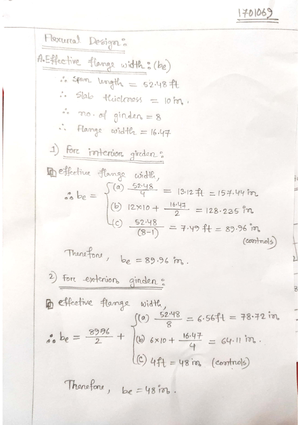 1701069
Flexural Design:
Effective flange width: (be)
∴ Span length = 52.48 ft
∴ Slab thickness = 10 in.
∴ no. of girder = 8
∴ Flange width = 16.47
1) For interior girder:
effective flange width,
∴ be =
(a) 52.48/4 = 13.12 ft = 157.44 in
(b) 12x10 + 16.47/2 = 128.235 in
(c) 52.48/(8-1) = 7.49 ft = 89.96 in
(controls)
Therefore, be = 89.96 in.
2) For exterior girder:
effective flange width,
∴ be = 89.96/2 +
(a) 52.48/8 = 6.56 ft = 78.72 in
(b) 6x10 + 16.47/4 = 64.11 in.
(c) 4 ft = 48 in (controls)
Therefore, be = 48 in.